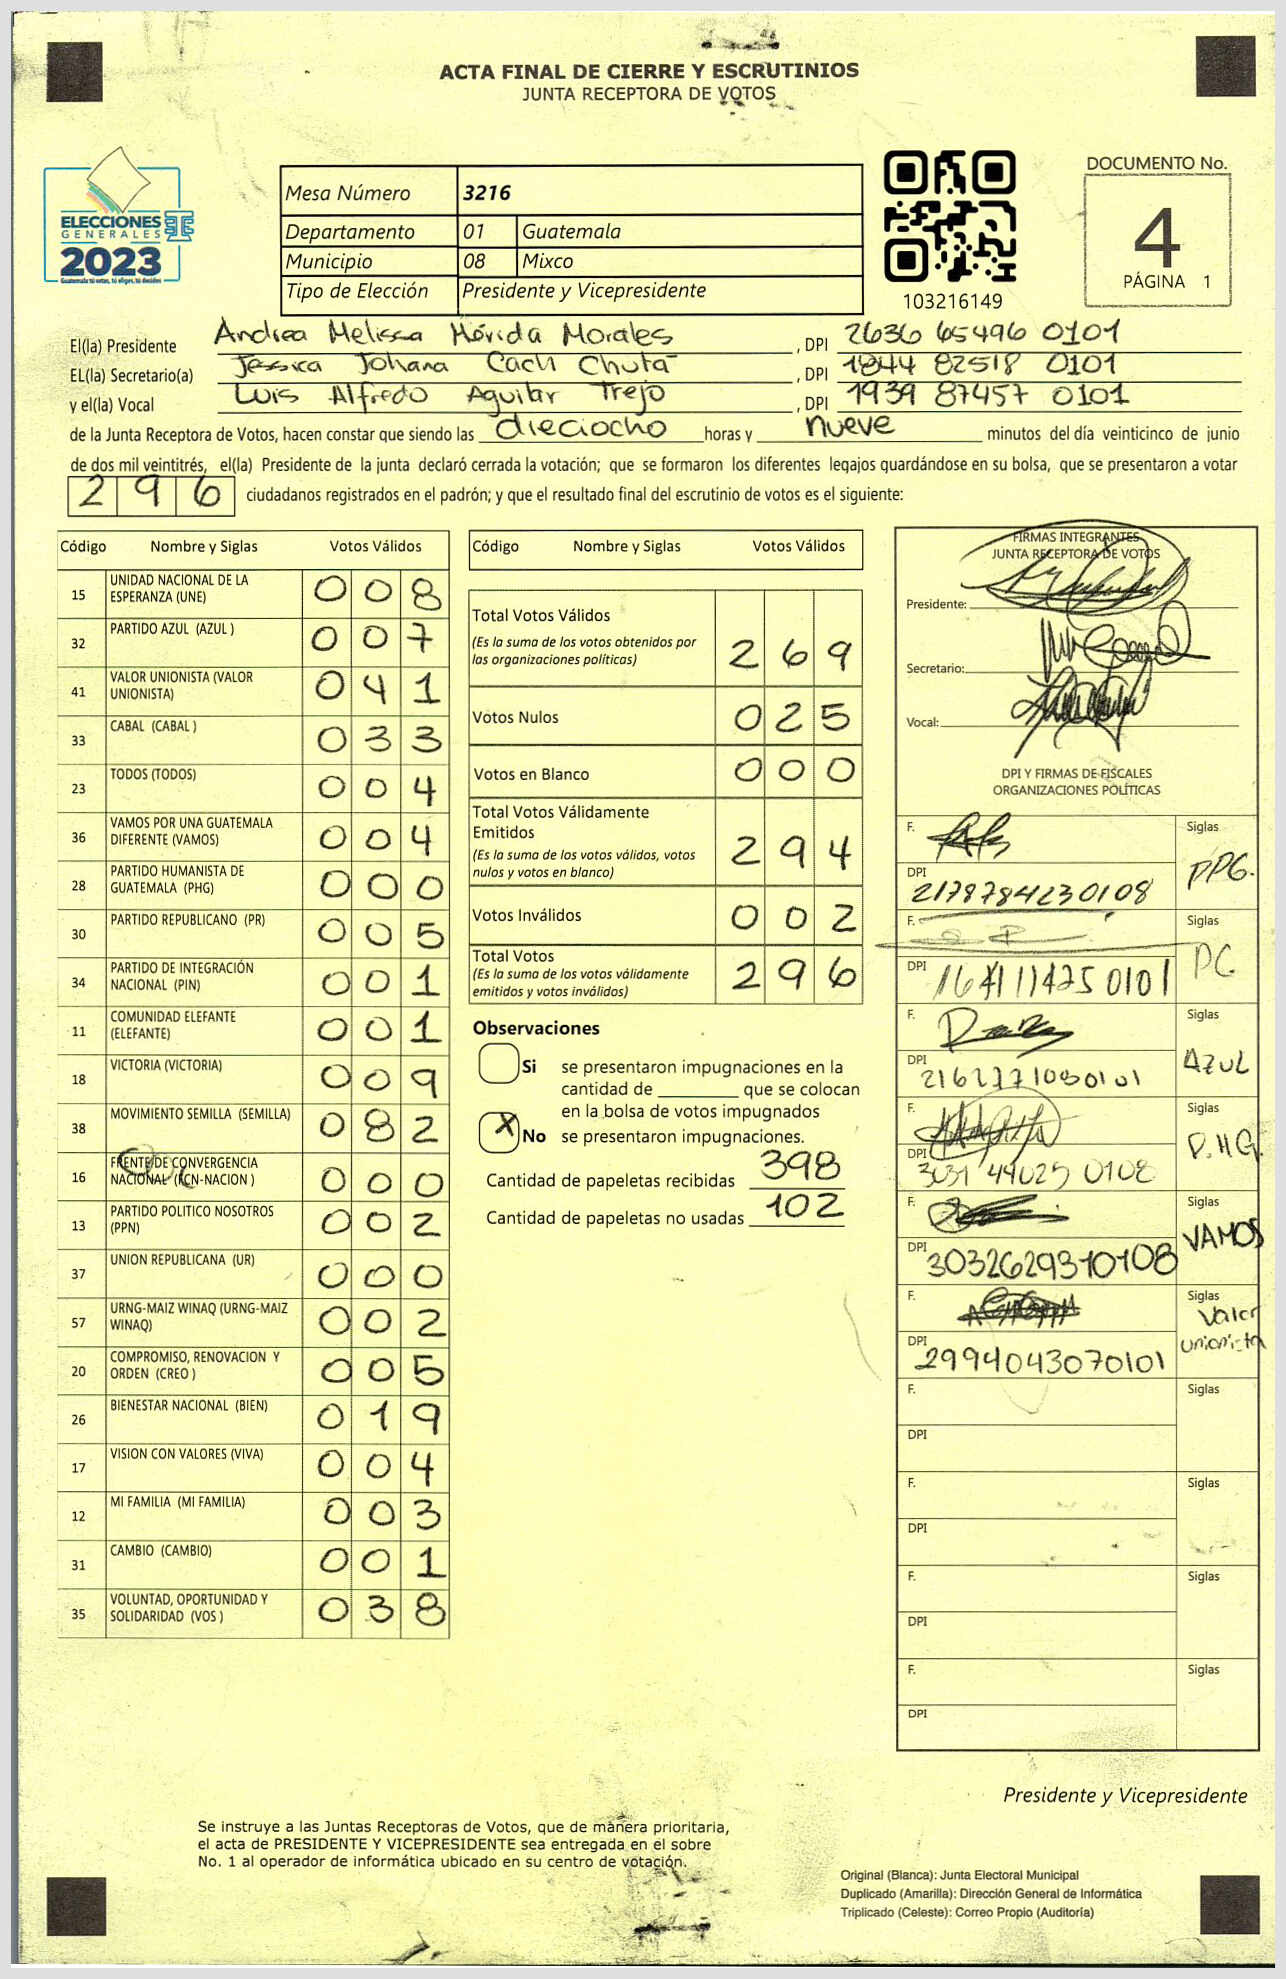 ACTA FINAL DE CIERRE Y ESCRUTINIOS
JUNTA RECEPTORA DE VOTOS
ELECCIONES
GENERALES
2023
Guatemala tú votas, tú eliges, tú decides
Mesa Número 3216
Departamento 01 Guatemala
Municipio 08 Mixco
Tipo de Elección Presidente y Vicepresidente
103216149
DOCUMENTO No.
4
PÁGINA 1
El(la) Presidente Andrea Melissa Mérida Morales, DPI 2636 65496 0101
EL(la) Secretario(a) Jessica Johana Cach Chutá, DPI 1844 82518 0101
y el(la) Vocal Luis Alfredo Aguilar Trejo, DPI 1939 87457 0101
de la Junta Receptora de Votos, hacen constar que siendo las dieciocho horas y nueve minutos del día veinticinco de junio
de dos mil veintitrés, el(la) Presidente de la junta declaró cerrada la votación; que se formaron los diferentes legajos guardándose en su bolsa, que se presentaron a votar
296 ciudadanos registrados en el padrón; y que el resultado final del escrutinio de votos es el siguiente:
Código Nombre y Siglas Votos Válidos
15 UNIDAD NACIONAL DE LA ESPERANZA (UNE) 008
32 PARTIDO AZUL (AZUL ) 007
41 VALOR UNIONISTA (VALOR UNIONISTA) 041
33 CABAL (CABAL ) 033
23 TODOS (TODOS) 004
36 VAMOS POR UNA GUATEMALA DIFERENTE (VAMOS) 004
28 PARTIDO HUMANISTA DE GUATEMALA (PHG) 000
30 PARTIDO REPUBLICANO (PR) 005
34 PARTIDO DE INTEGRACIÓN NACIONAL (PIN) 001
11 COMUNIDAD ELEFANTE (ELEFANTE) 001
18 VICTORIA (VICTORIA) 009
38 MOVIMIENTO SEMILLA (SEMILLA) 082
16 FRENTE DE CONVERGENCIA NACIONAL (FCN-NACION ) 000
13 PARTIDO POLITICO NOSOTROS (PPN) 002
37 UNION REPUBLICANA (UR) 000
57 URNG-MAIZ WINAQ (URNG-MAIZ WINAQ) 002
20 COMPROMISO, RENOVACION Y ORDEN (CREO ) 005
26 BIENESTAR NACIONAL (BIEN) 019
17 VISION CON VALORES (VIVA) 004
12 MI FAMILIA (MI FAMILIA) 003
31 CAMBIO (CAMBIO) 001
35 VOLUNTAD, OPORTUNIDAD Y SOLIDARIDAD (VOS ) 038
Código Nombre y Siglas Votos Válidos
Total Votos Válidos 269
(Es la suma de los votos obtenidos por
las organizaciones políticas)
Votos Nulos 025
Votos en Blanco 000
Total Votos Válidamente
Emitidos 294
(Es la suma de los votos válidos, votos
nulos y votos en blanco)
Votos Inválidos 002
Total Votos 296
(Es la suma de los votos válidamente
emitidos y votos inválidos)
Observaciones
Si se presentaron impugnaciones en la
cantidad de ________ que se colocan
en la bolsa de votos impugnados
X No se presentaron impugnaciones.
Cantidad de papeletas recibidas 398
Cantidad de papeletas no usadas 102
FIRMAS INTEGRANTES
JUNTA RECEPTORA DE VOTOS
Presidente:
Secretario:
Vocal:
DPI Y FIRMAS DE FISCALES
ORGANIZACIONES POLÍTICAS
F. Siglas PPG.
DPI 2178784230108
F. Siglas PC
DPI
F. Siglas AZUL
DPI 2162771080101
F. Siglas P.H.G.
DPI 3031 44025 0108
F. Siglas VAMOS
DPI 3032629310108
F. Siglas Valor unionista
DPI 2994043070101
F. Siglas
DPI
F. Siglas
DPI
F. Siglas
DPI
F. Siglas
DPI
Presidente y Vicepresidente
Se instruye a las Juntas Receptoras de Votos, que de manera prioritaria,
el acta de PRESIDENTE Y VICEPRESIDENTE sea entregada en el sobre
No. 1 al operador de informática ubicado en su centro de votación.
Original (Blanca): Junta Electoral Municipal
Duplicado (Amarilla): Dirección General de Informática
Triplicado (Celeste): Correo Propio (Auditoría)